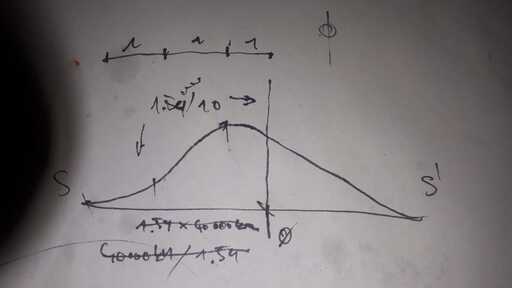 ϕ
1 1 1
1.54/10 →
S S'
1.54 x 40000km
ϕ
40000km / 1.54